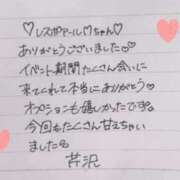 ♡レスポアール♡ちゃん♡
ありがとうございました♡
イベント期間たくさん会いに
来てくれて本当にありがとう♡
オプションも嬉しかったです。
今回もたくさん甘えちゃい
ました。
芹沢